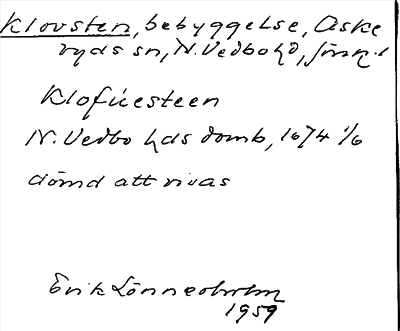 Klovsten, bebyggelse, Aske
ryds sn, N. Vedbo hd, Jönk. l
Klofúesteen
N. Vedbo hds domb, 1674 1/6
dömd att rivas
Erik Lönnerholm
1959